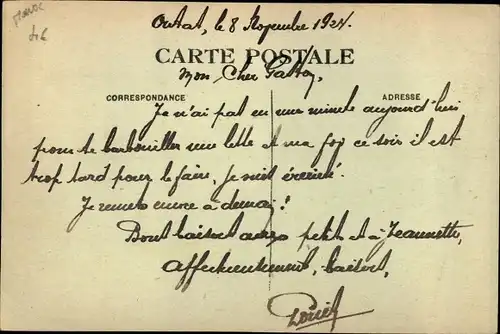 MAROC
Outat, le 8 Novembre 1921.
CARTE POSTALE
Mon Cher
CORRESPONDANCE
ADRESSE
Je n'ai pas eu une minute aujourd'hui
pour te barbouiller une lettre et ma foi ce soir il est
trop tard pour le faire, je suis éreinté.
Je remets encore à demain!
Bons baisers aux petits et à Jeannette,
Affectueusement, baisers,